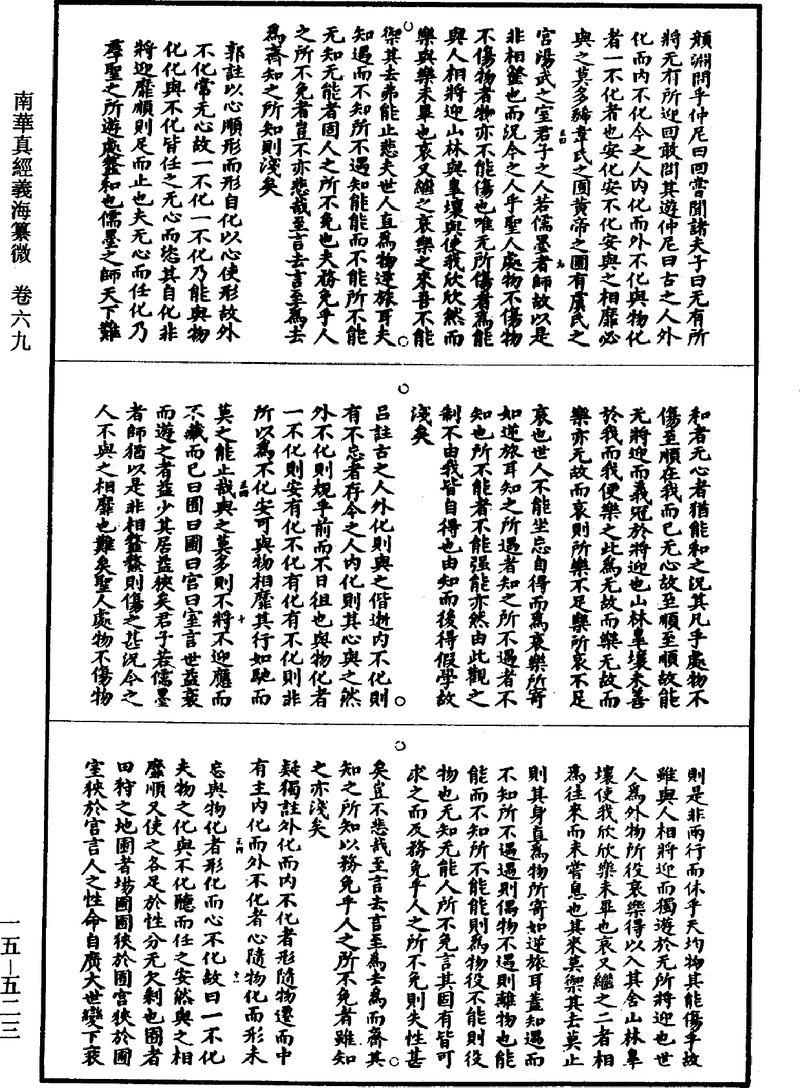 南華真經義海纂微　卷六九
顏淵問乎仲尼曰回嘗聞諸夫子曰无有所
將无有所迎回敢問其遊仲尼曰古之人外
化而內不化今之人內化而外不化與物化
者一不化者也安化安不化安與之相靡必
與之莫多狶韋氏之囿黃帝之圃有虞氏之
宮湯武之室君子之人若儒墨者師故以是
非相𩐎也而況今之人乎聖人處物不傷物
不傷物者物亦不能傷也唯无所傷者為能
與人相將迎山林與臯壤與使我欣欣然而
樂與樂未畢也哀又繼之哀樂之來吾不能
禦其去弗能止悲夫世人直為物逆旅耳夫
知遇而不知所不遇知能能而不能所不能
无知无能者固人之所不免也夫務免乎人
之所不免者豈不亦悲哉至言去言至為去
為齊知之所知則淺矣
郭註以心順形而形自化以心使形故外
不化常无心故一不化一不化乃能與物
化化與不化皆任之无心而恣其自化非
將迎靡順則足而止也夫无心而任化乃
羣聖之所遊處𩐎和也儒墨之師天下難
和者无心者猶能和之況其凡乎處物不
傷至順在我而已无心故至順至順故能
无將迎而義冠於將迎也山林臯壤未善
於我而我便樂之此為无故而樂无故而
樂亦无故而哀則所樂不足樂所哀不足
哀也世人不能坐忘自得而為哀樂所寄
如逆旅耳知之所遇者知之所不遇者不
知也所不能者不能强能亦然由此觀之
制不由我皆自得也由知而後得假學故
淺矣
呂註古之人外化則與之偕逝內不化則
有不忘者存今之人內化則其心與之然
外不化則規乎前而不日徂也與物化者
一不化則安有化不化有化有不化則非
所以為不化安可與物相靡其行如馳而
莫之能止哉與之莫多則不將不迎應而
不藏而已曰囿曰圃曰宮曰室言世益衰
而遊之者益少其居益狹矣君子若儒墨
者師猶以是非相𩐎𩐎則傷之甚況今之
人不與之相靡也難矣聖人處物不傷物
則是非兩行而休乎天均物其能傷乎故
雖與人相將迎而獨遊於无所將迎也世
人為外物所役哀樂得以入其舍山林臯
壤使我欣欣樂未畢也哀又繼之二者相
為往來而未嘗息也其來莫禦其去莫止
則其身直為物所寄如逆旅耳蓋知遇而
不知所不遇遇則偶物不遇則離物也能
能而不知所不能能則為物役不能則役
物也无知无能人所不免言其固有皆可
求之而及務免乎人之所不免則失性甚
矣豈不悲哉至言去言至為去為而齊其
知之所知以務免乎人之所不免者雖知
之亦淺矣
疑獨註外化而內不化者形隨物遷而中
有主內化而外不化者心隨物化而形未
忘與物化者形化而心不化故曰一不化
夫物之化與不化聽而任之安然與之相
靡順又使之各足於性分无欠剩也囿者
田狩之地圃者場圃圃狹於囿宮狹於圃
室狹於宮言人之性命自廣大世變下衰
一五—五二三